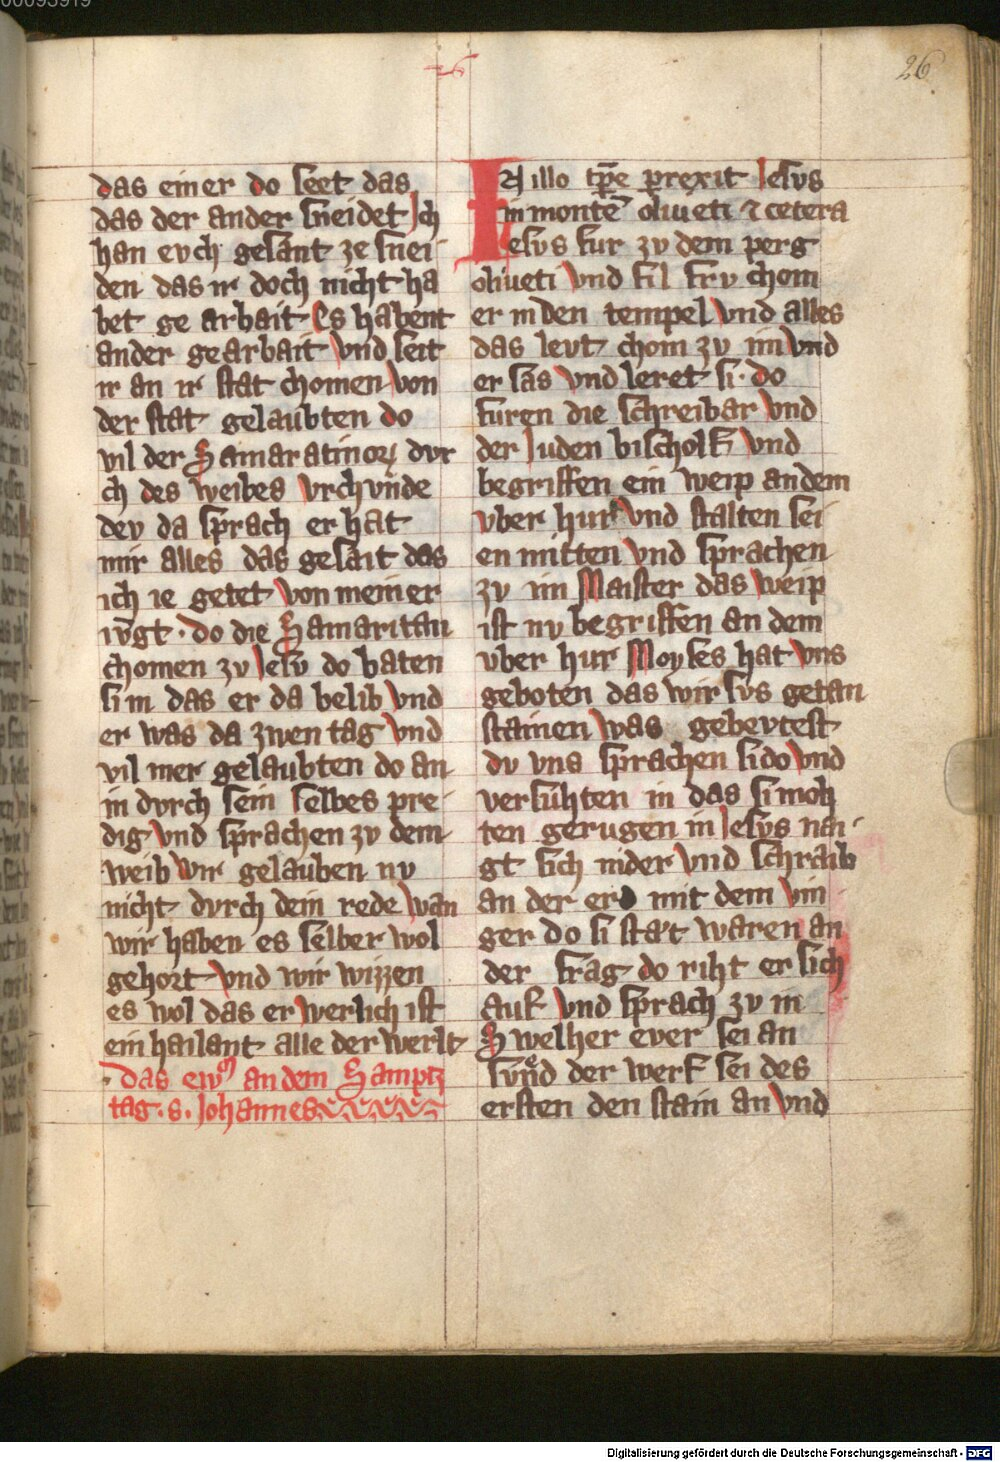 26
das einer do seet das
das der ander sneidet Ich
han evch gesant ze snei
den das ir doch nicht ha
bet ge arbait Es habent
ander gearbait vnd seit
ir an ir stat chomen von
der stat gelaubten do
vil der Samaratinorꝝ dvr
ch des weibes vrchvnde
dev da sprach er hat
mir alles das gesait das
ich ie getet von meiner
ivgt · do die Samaritan
chomen zv Iesv do baten
si in das er da belib vnd
er was da zwen tag vnd
vil mer gelaubten do an
in dvrch sein selbes pre
dig vnd sprachen zv dem
weib wir gelauben nv
nicht dvrch dein rede wan
wir haben es selber wol
gehort vnd wir wizzen
es wol das er werlich ist
ein hailant alle der werlt
das ewm an dem Samptz
tag . s . Johannes
IN illo tp̄e prexit Iesvs
in montē oliueti ⁊ cetera
Iesvs fur zv dem perg
oliueti vnd fil frv chom
er in den tempel vnd alles
das levt chom zv im vnd
er sas vnd leret si · do
furen die schreibar vnd
der Juden bischolf vnd
begriffen ein weip an dem
vber hur vnd stalten sei
en mitten vnd sprachen
zv im Maister das weip
ist nv begriffen an dem
vber hur Moyses hat vns
geboten das wir svs getan
stainen was gebevtest
dv vns sprachen si do vnd
versuhten in das si moh
ten gerugen in Iesvs nai
gt sich nider vnd schraib
an der erd mit dem vin
ger do si stat waren an
der frag do riht er sich
auf vnd sprach zv in
Swelher ever sei an
svnd der werf sei des
ersten den stain an vnd
Digitalisierung gefördert durch die Deutsche Forschungsgemeinschaft - DFG